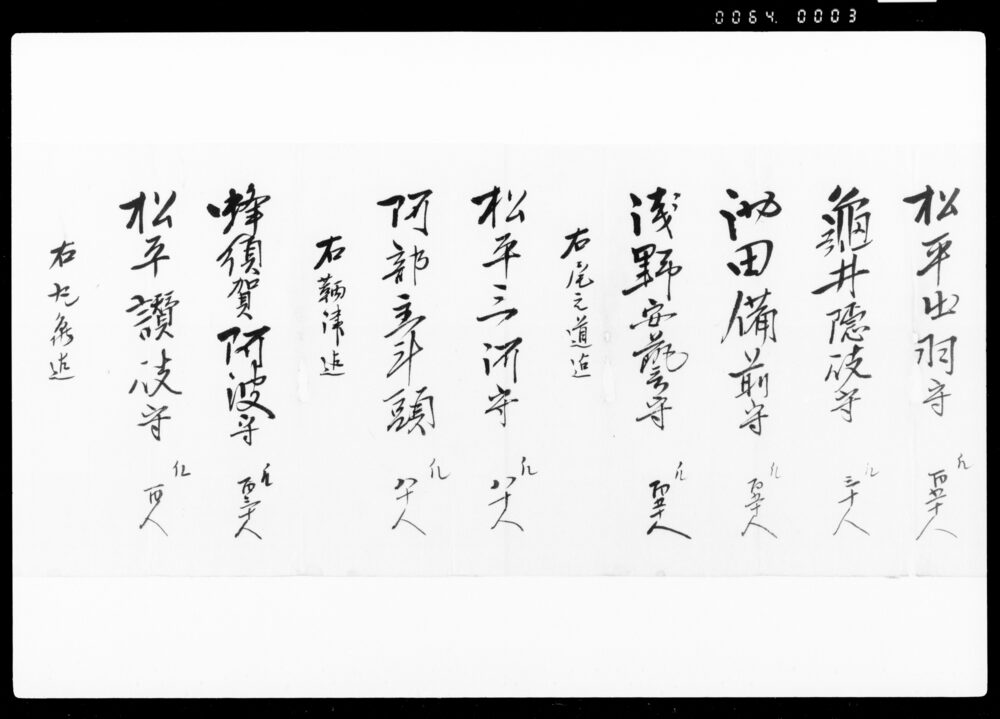 0064. 0003
松平出羽守 凡百五十人
龜井隠岐守 凡三十人
池田備前守 凡百五十人
浅野安藝守 百五十人
右尾之道迄
松平三河守 凡八十人
阿部主斗頭 凡八十人
右鞆津迄
蜂須賀阿波守 凡百三十人
松平讃岐守 凡百人
右丸亀迄